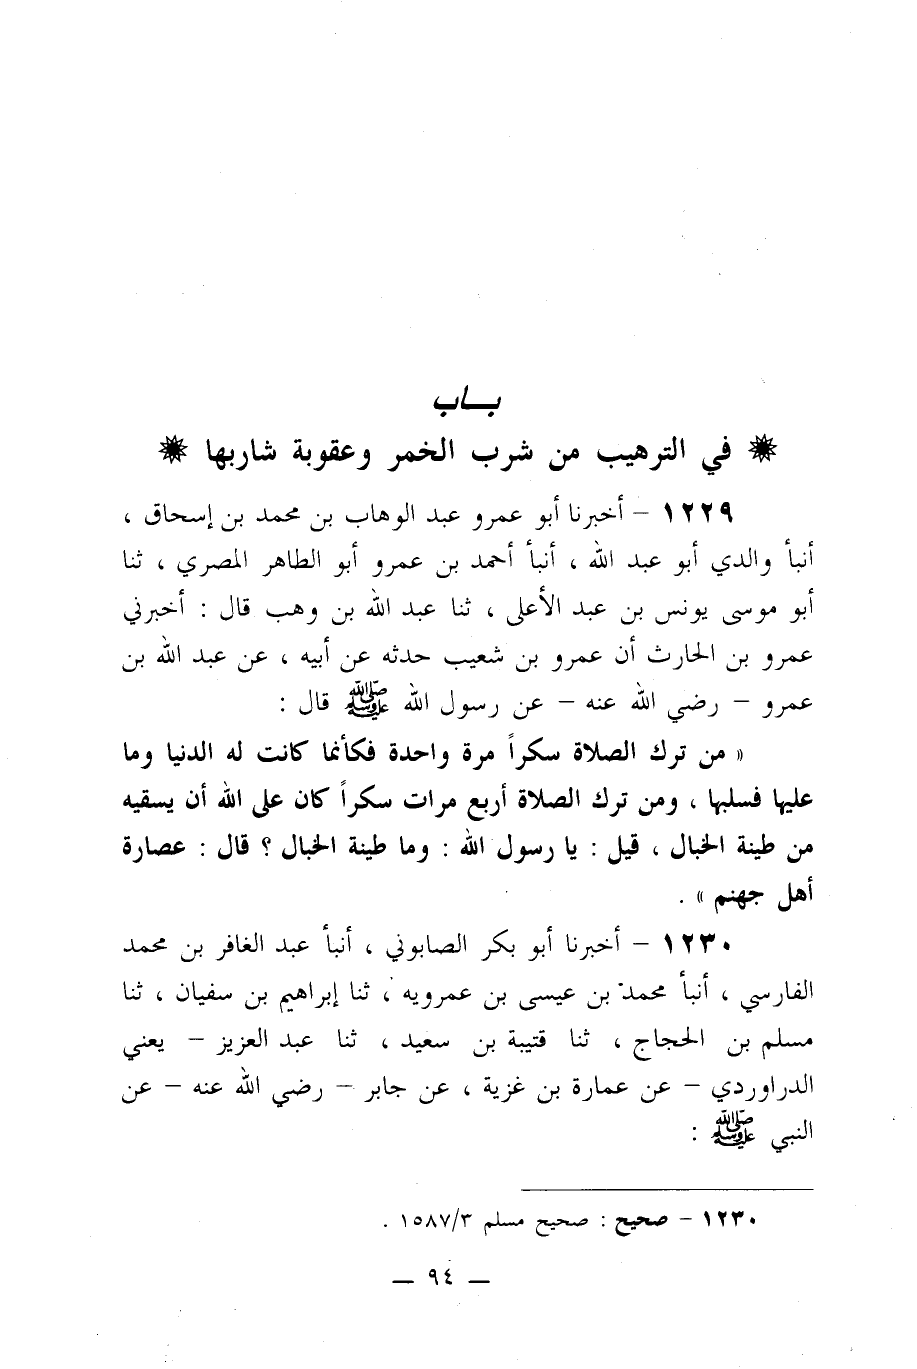 بـــاب
في الترهيب من شرب الخمر وعقوبة شاربها
١٢٢٩ – أخبرنا أبو عمرو عبد الوهاب بن محمد بن إسحاق ،
أنبأ والدي أبو عبد الله ، أنبأ أحمد بن عمرو أبو الطاهر المصري ، ثنا
أبو موسى يونس بن عبد الأعلى ، ثنا عبد الله بن وهب قال : أخبرني
عمرو بن الحارث أن عمرو بن شعيب حدثه عن أبيه ، عن عبد الله بن
عمرو – رضي الله عنه – عن رسول الله ﷺ قال :
« من ترك الصلاة سكراً مرة واحدة فكأنما كانت له الدنيا وما
عليها فسلبها ، ومن ترك الصلاة أربع مرات سكراً كان على الله أن يسقيه
من طينة الخبال ، قيل : يا رسول الله : وما طينة الخبال ؟ قال : عصارة
أهل جهنم » .
١٢٣٠ – أخبرنا أبو بكر الصابوني ، أنبأ عبد الغافر بن محمد
الفارسي ، أنبأ محمد بن عيسى بن عمرويه ، ثنا إبراهيم بن سفيان ، ثنا
مسلم بن الحجاج ، ثنا قتيبة بن سعيد ، ثنا عبد العزيز – يعني
الدراوردي – عن عمارة بن غزية ، عن جابر – رضي الله عنه – عن
النبي ﷺ :
١٢٣٠ – صحيح : صحيح مسلم ١٥٨٧/٣ .
– ٩٤ –